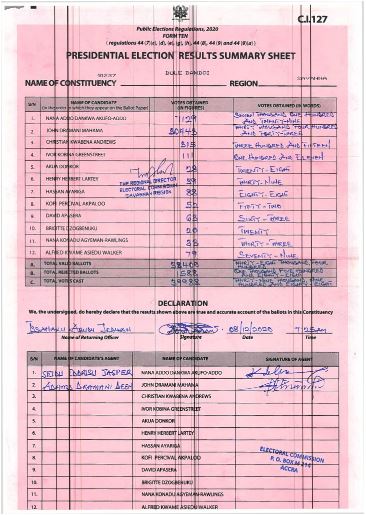 C.I.127
Public Elections Regulations, 2020
FORM TEN
(regulations 44 (7)(c), (d), (e), (g), (h), 44 (8), 44 (9) and 44 (9)(a))
PRESIDENTIAL ELECTION RESULTS SUMMARY SHEET
NAME OF CONSTITUENCY
REGION SAVANNAH
S/N NAME OF CANDIDATE (In the order in which they appear on the Ballot Paper) VOTES OBTAINED (IN FIGURES) VOTES OBTAINED (IN WORDS)
1. NANA ADDO DANKWA AKUFO-ADDO 7129 SEVEN THOUSAND ONE HUNDRED AND TWENTY-NINE
2. JOHN DRAMANI MAHAMA THIRTY THOUSAND FOUR HUNDRED AND FORTY-THREE
3. CHRISTIAN KWABENA ANDREWS 315 THREE HUNDRED AND FIFTEEN
4. IVOR KOBINA GREENSTREET 111 ONE HUNDRED AND ELEVEN
5. AKUA DONKOR 28 TWENTY-EIGHT
6. HENRY HERBERT LARTEY 39 THIRTY-NINE
7. HASSAN AYARIGA 88 EIGHTY-EIGHT
8. KOFI PERCIVAL AKPALOO 52 FIFTY-TWO
9. DAVID APASERA 63 SIXTY-THREE
10. BRIGITTE DZOGBENUKU 20 TWENTY
11. NANA KONADU AGYEMAN-RAWLINGS 33 THIRTY-THREE
12. ALFRED KWAME ASIEDU WALKER 79 SEVENTY-NINE
THE REGIONAL DIRECTOR
ELECTORAL COMMISSION
SAVANNAH REGION
A. TOTAL VALID BALLOTS THIRTY-EIGHT THOUSAND FOUR HUNDRED
B. TOTAL REJECTED BALLOTS
C. TOTAL VOTES CAST
DECLARATION
We, the undersigned, do hereby declare that the results shown above are true and accurate account of the ballots in this Constituency
08/12/2020 7:25am
Name of Returning Officer Signature Date Time
S/N NAME OF CANDIDATE'S AGENT NAME OF CANDIDATE SIGNATURE OF AGENT
1. SEIDU IDDRISU JASPER NANA ADDO DANKWA AKUFO-ADDO
2. ADAMS DRAMANI JOHN DRAMANI MAHAMA
3. CHRISTIAN KWABENA ANDREWS
4. IVOR KOBINA GREENSTREET
5. AKUA DONKOR
6. HENRY HERBERT LARTEY
7. HASSAN AYARIGA
8. KOFI PERCIVAL AKPALOO
9. DAVID APASERA
10. BRIGITTE DZOGBENUKU
11. NANA KONADU AGYEMAN-RAWLINGS
12. ALFRED KWAME ASIEDU WALKER
ELECTORAL COMMISSION
P. O. BOX M 214
ACCRA